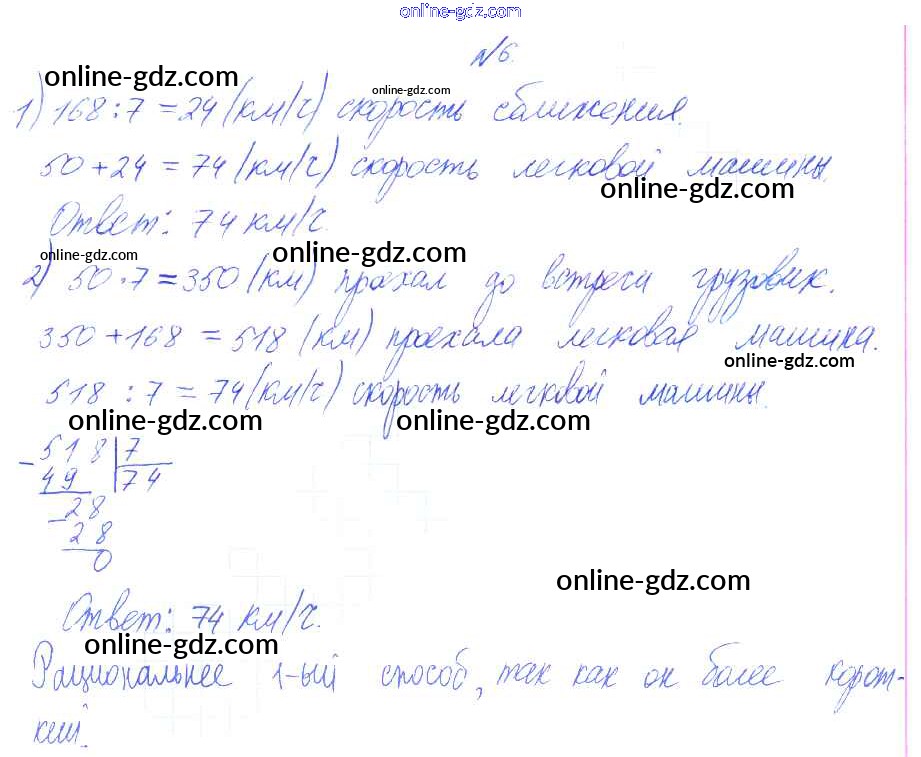 online-gdz.com
№6.
online-gdz.com
online-gdz.com
1) 168 : 7 = 24 (км/ч) скорость сближения.
50 + 24 = 74 (км/ч) скорость легковой машины.
online-gdz.com
Ответ: 74 км/ч.
online-gdz.com
online-gdz.com
2) 50 · 7 = 350 (км) проехал до встречи грузовик.
350 + 168 = 518 (км) проехала легковая машина.
online-gdz.com
518 : 7 = 74 (км/ч) скорость легковой машины.
online-gdz.com
online-gdz.com
- 518 | 7
49 | 74
- 28
28
0
online-gdz.com
Ответ: 74 км/ч.
online-gdz.com
Рациональнее 1-ый способ, так как он более корот-
кий.